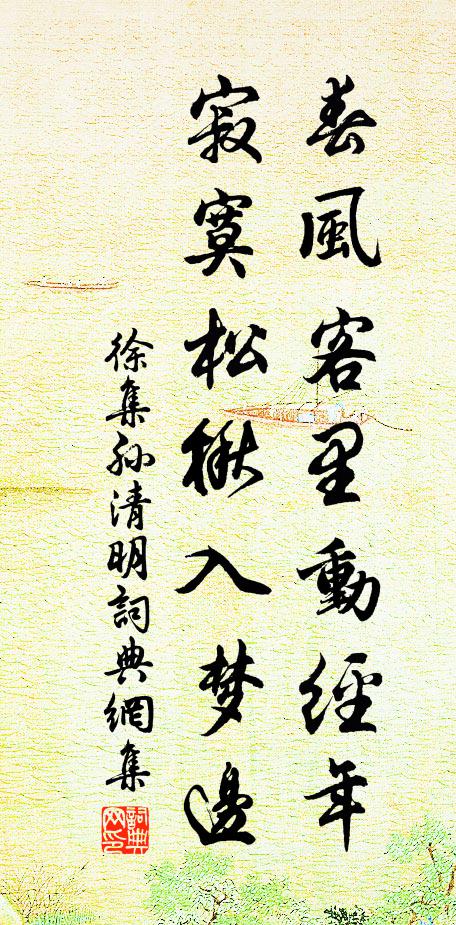 春風客里動經年
寂寞松楸入梦邊
徐集孙清明詞典網集
詞典网印